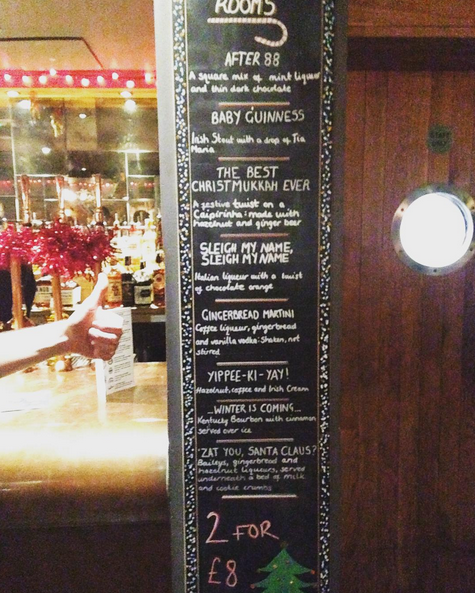 ROOMS
AFTER 88
A square mix of mint liqueur
and thin dark chocolate
BABY GUINNESS
Irish Stout with a drop of Tia
Maria
THE BEST
CHRISTMUKKAH EVER
A festive twist on a
Caipirinha: made with
hazelnut and ginger beer
SLEIGH MY NAME,
SLEIGH MY NAME
Italian liqueur with a twist
of chocolate orange
GINGERBREAD MARTINI
Coffee liqueur, gingerbread
and vanilla vodka: Shaken, not
stirred
YIPPEE-KI-YAY!
Hazelnut, coffee and Irish Cream
...WINTER IS COMING...
Kentucky Bourbon with cinnamon
served over ice
'ZAT YOU, SANTA CLAUS?
Baileys, gingerbread and
hazelnut liqueurs, served
underneath a bed of milk
and cookie crumbs
2 FOR
£8
STAFF
ONLY